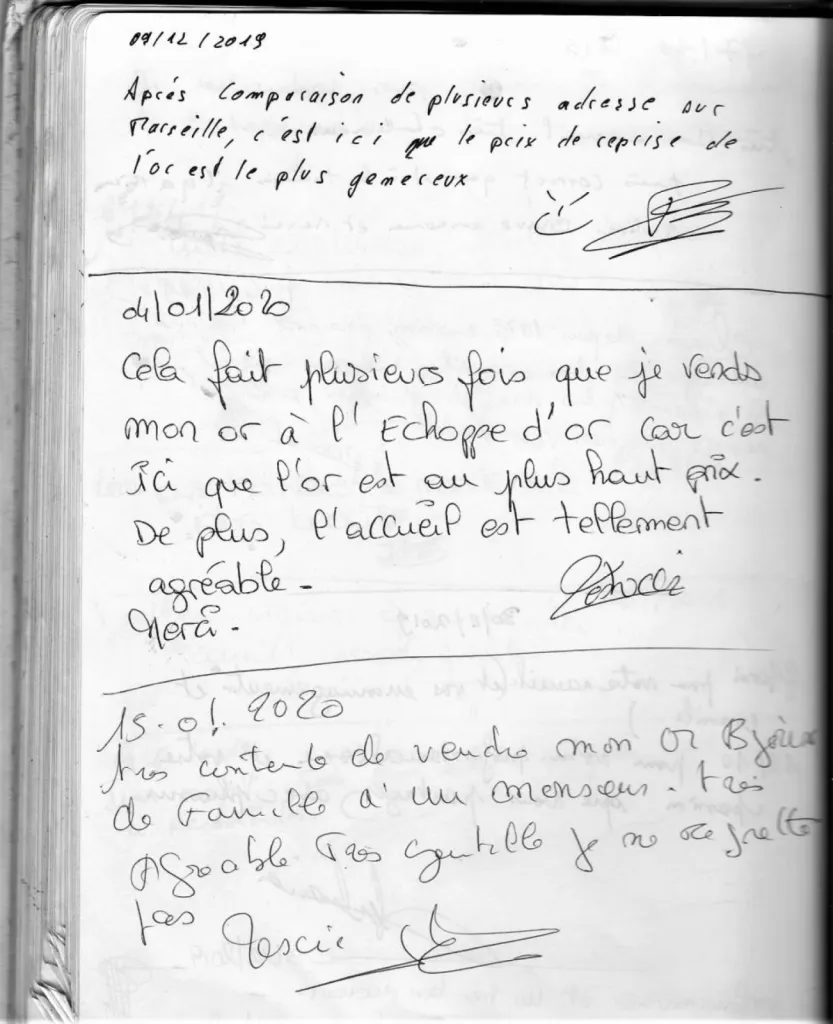 09/12/2019
Après comparaison de plusieurs adresse sur
Marseille, c'est ici que le prix de reprise de
l'or est le plus genereux
04/01/2020
Cela fait plusieurs fois que je vends
mon or à l'Echoppe d'or car c'est
ici que l'or est au plus haut prix.
De plus, l'accueil est tellement
agréable.
Merci.
15.01.2020
tres contente de vendre mon or Bijoux
de Famille a un monsieur. tres
Agreable Tres gentille je ne regrette
pas